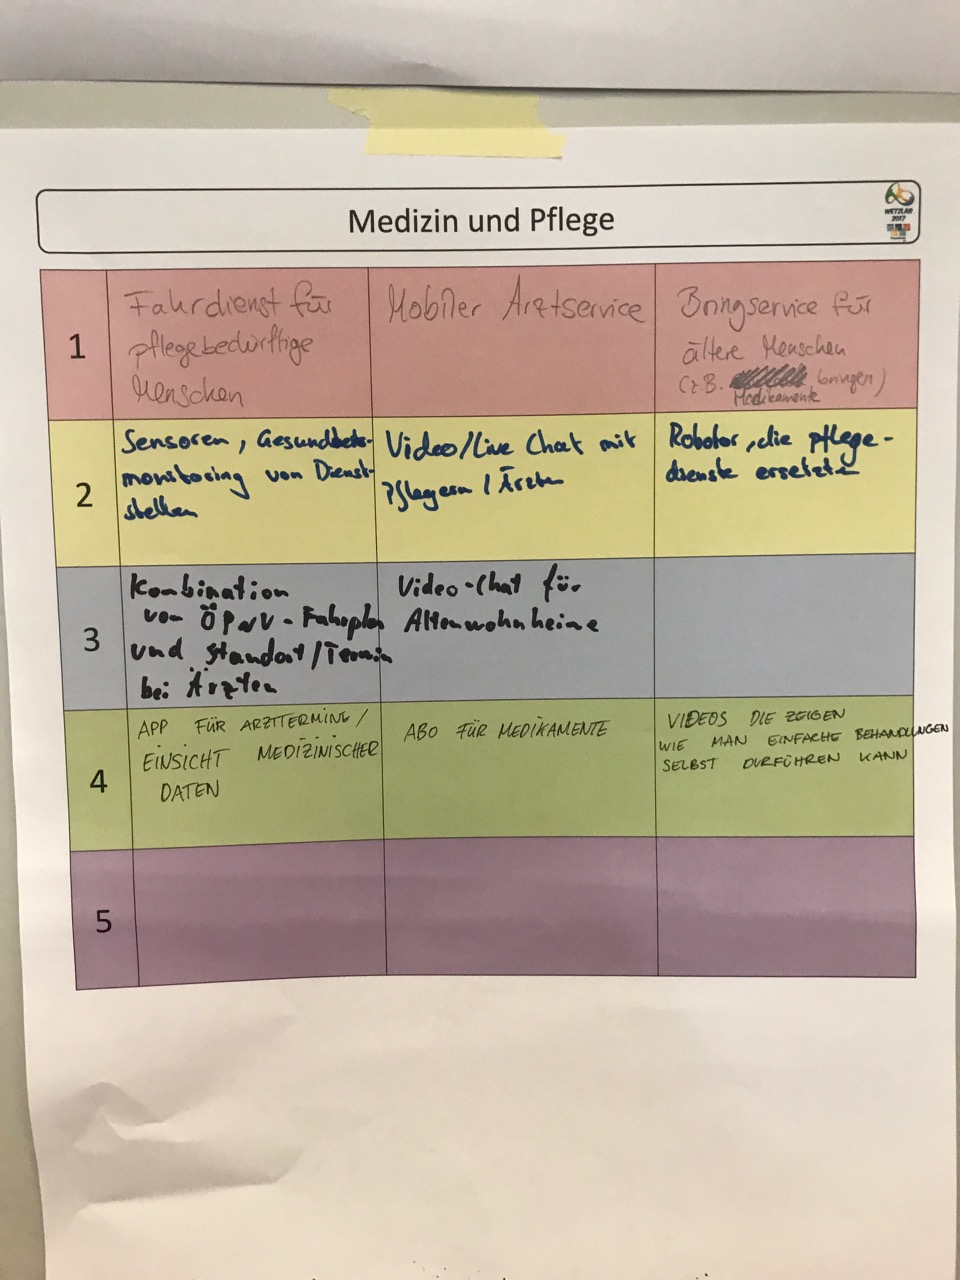 Medizin und Pflege
WETZLAR
2017
1
Fahrdienst für
pflegebedürftige
Menschen
Mobiler Arztservice
Bringservice für
ältere Menschen
(z.B. bringen)
Medikamente
2
Sensoren, Gesundheits-
monitoring von Dienst-
stellen
Video/Live Chat mit
Pflegern / Ärzten
Roboter, die pflege-
dienste ersetzen
3
Kombination
von ÖPNV-Fahrplan
und Standort/Termin
bei Ärzten
Video-Chat für
Altenwohnheime
4
APP FÜR ARZTTERMINE/
EINSICHT MEDIZINISCHER
DATEN
ABO FÜR MEDIKAMENTE
VIDEOS DIE ZEIGEN
WIE MAN EINFACHE BEHANDLUNGEN
SELBST DURFÜHREN KANN
5